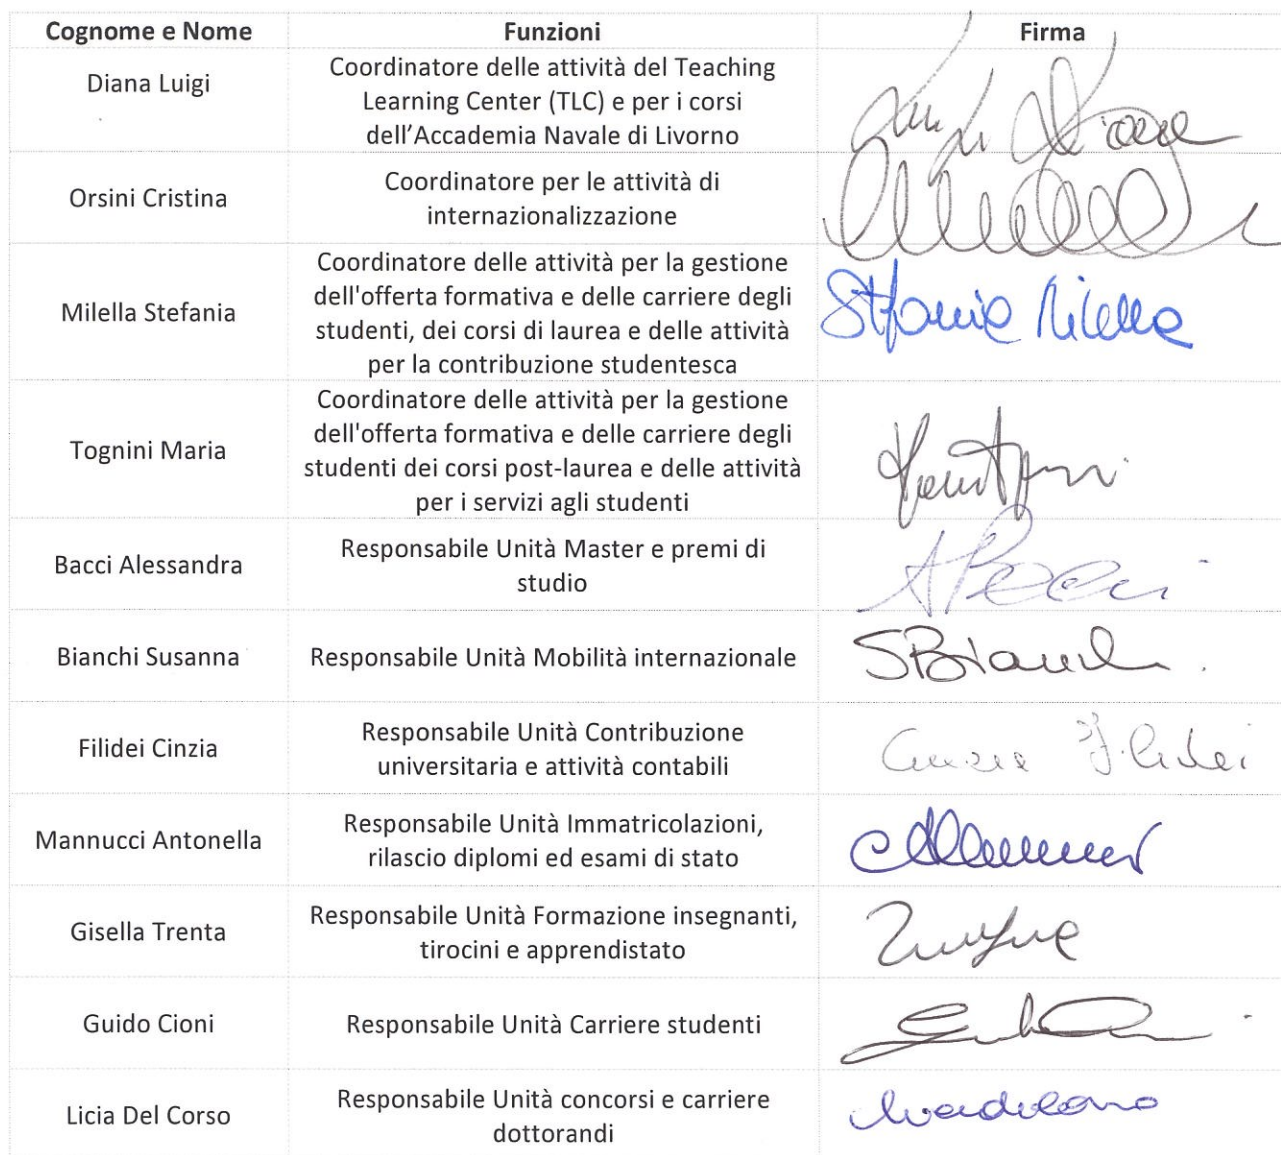 Cognome e Nome Funzioni Firma
Diana Luigi
Coordinatore delle attività del Teaching
Learning Center (TLC) e per i corsi
dell'Accademia Navale di Livorno
Luigi Diana
Orsini Cristina
Coordinatore per le attività di
internazionalizzazione
Milella Stefania
Coordinatore delle attività per la gestione
dell'offerta formativa e delle carriere degli
studenti, dei corsi di laurea e delle attività
per la contribuzione studentesca
Stefania Milella
Tognini Maria
Coordinatore delle attività per la gestione
dell'offerta formativa e delle carriere degli
studenti dei corsi post-laurea e delle attività
per i servizi agli studenti
Bacci Alessandra
Responsabile Unità Master e premi di
studio
ABacci
Bianchi Susanna
Responsabile Unità Mobilità internazionale
SBianchi
Filidei Cinzia
Responsabile Unità Contribuzione
universitaria e attività contabili
Cinzia Filidei
Mannucci Antonella
Responsabile Unità Immatricolazioni,
rilascio diplomi ed esami di stato
Gisella Trenta
Responsabile Unità Formazione insegnanti,
tirocini e apprendistato
Guido Cioni
Responsabile Unità Carriere studenti
Licia Del Corso
Responsabile Unità concorsi e carriere
dottorandi